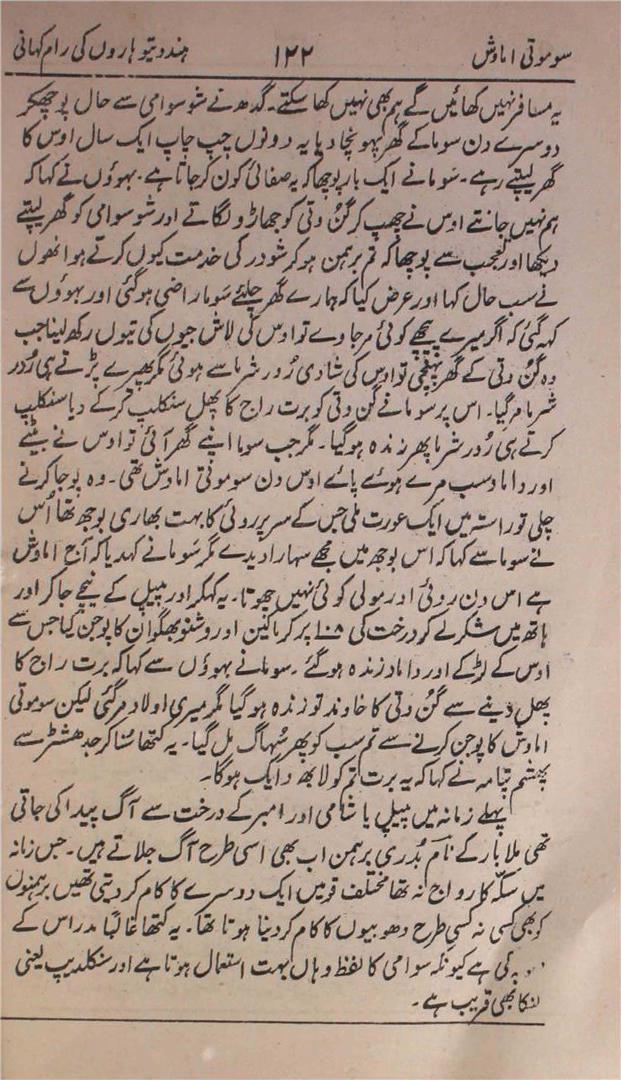 سوموتی اماوش ۱۲۲ ہندو تیوہاروں کی رام کہانی
یہ مسافر نہیں کھائیں گے ہم بھی نہیں کھا سکتے۔ گدھ نے شو سوامی سے حال پوچھکر
دوسرے دن سوما کے گھر پہونچا دیا یہ دونوں چپ چاپ ایک سال اوس کا
گھر لیپتے رہے۔ سَومانے ایک بار پوچھا کہ یہ صفائی کون کر جاتا ہے۔ بہوؤں نے کہا کہ
ہم نہیں جانتے اوس نے چھپ کر گُن وتی کو جھاڑو لگاتے اور شو سوامی کو گھر لیپتے
دیکھا اور تعجب سے پوچھا کہ تم برہمن ہو کر شودر کی خدمت کیوں کرتے ہو انھوں
نے سب حال کہا اور عرض کیا کہ ہمارے گھر چلئے سَوما راضی ہو گئی اور بہوؤں سے
کہہ گئی کہ اگر میرے پیچھے کوئی مر جاوے تو اوس کی لاش جیوں کی تیوں رکھ لینا جب
وہ گُن وتی کے گھر پہنچی تو اوس کی شادی رُودر شرما سے ہوئی مگر پھیرے پڑتے ہی رُودر
شرما مر گیا۔ اس پر سومانے گُن وتی کو برت راج کا پھل سنکلپ کر کے دیا سنکلپ
کرتے ہی رُودر شرما پھر زندہ ہو گیا۔ مگر جب سوما اپنے گھر آئی تو اوس نے بیٹے
اور داماد سب مرے ہوئے پائے اوس دن سوموتی اماوش تھی۔ وہ پوجا کرنے
چلی تو راستہ میں ایک عورت ملی جس کے سر پر روئی کا بہت بھاری بوجھ تھا اُس
نے سوما سے کہا کہ اس بوجھ میں مجھے سہارا دیدے مگر سَومانے کہدیا کہ آج اماوش
ہے اس دن روئی اور مولی کوئی نہیں چھوتا۔ یہ کہکر اور پیپل کے نیچے جا کر اور
ہاتھ میں شکر لے کر درخت کی ۱۰۸ پر کرمائیں اور وشنو بھگوان کا پوجن کیا جس سے
اوس کے لڑکے اور داماد زندہ ہو گئے۔ سومانے بہوؤں سے کہا کہ برت راج کا
پھل دینے سے گُن وتی کا خاوند تو زندہ ہو گیا مگر میری اولاد مر گئی لیکن سوموتی
اماوش کا پوجن کرنے سے تم سب کو پھر سُہاگ مل گیا۔ یہ کتھا سُنا کر جدھشٹر سے
بھیشم پتامہ نے کہا کہ یہ برت تم کو لابھ دایک ہوگا۔
پہلے زمانہ میں پیپل یا شامی اور امبر کے درخت سے آگ پیدا کی جاتی
تھی ملابار کے نام بُدری برہمن اب بھی اسی طرح آگ جلاتے ہیں۔ جس زمانہ
میں سکّہ کا رواج نہ تھا مختلف قومیں ایک دوسرے کا کام کر دیتی تھیں برہمنوں
کو بھی کسی نہ کسی طرح دھوبیوں کا کام کر دینا ہوتا تھا۔ یہ کتھا غالباً مدراس کے
کی ہے کیونکہ سوامی کا لفظ وہاں بہت استعمال ہوتا ہے اور سنکلدیپ یعنی
لنکا بھی قریب ہے۔